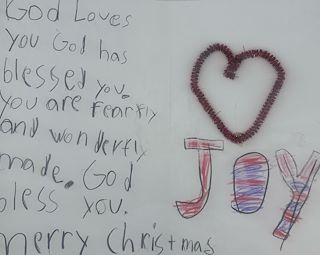 God Loves
you God has
blessed you.
you are fearfly
and wonderfly
made. God
bless you.
merry Christmas
JOY